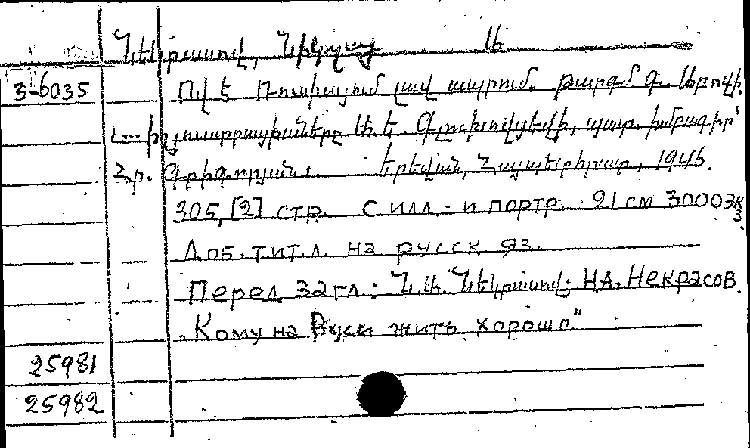 Նեկրասով, Նիկոլայ Ա.
3-6035 Ով է Ռուսիայում լավ ապրում. թարգմ. Գ.
Հր. Գրիգորյան. Երեվան, Հայպետհրատ, 1945.
305, [2] стр. с илл. и портр. 21 см 3000 экз
Доб. тит. л. на русск яз.
Перед загл.: Ն. Ա. Նեկրասով; Н.А. Некрасов.
„Кому на Руси жить хорошо"
25981
25982